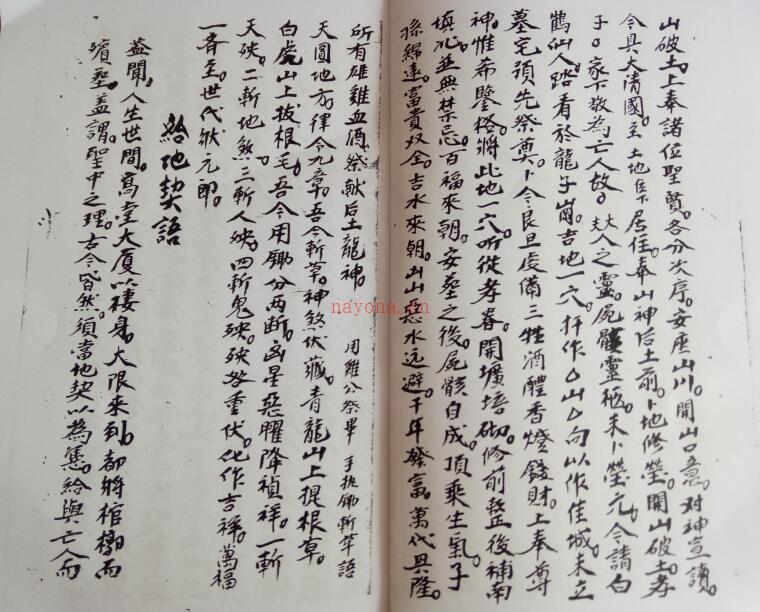 山破土上奉諸位聖賢。各分次序。安座山川。開山口意。对神宣讀。
今具大清國。至土地住下居住。奉山神后土前。卜地修塋。開山破土。孝
子。家下敬為亡人故。大夫人之靈。屍骸靈柩未卜塋兆。今請白
鶴仙人踏看於龍子崗。吉地一穴。扦作厶山厶向以作佳城。未立
墓宅預先祭奠。卜今良旦俊備三牲酒醴香燈錢財。上奉尊
神。惟希鑒格。將此地一穴。听從孝眷。開壙培砌。修前整後補南
填北。並無禁忌。百福來朝。安塟之後。屍骸自成。頂乘生氣。子
孫綿遠。富貴双全。吉水來朝。凶山惡水远避。千年發富。萬代興隆。
所有雄雞血酒。祭献后土龍神。 用雞公祭畢 手执鋤斬草語
天圓地方。律令九章。吾今斬草。神煞伏藏。青龍山上提根草。
白虎山上拔根毛。吾今用鋤分两断。凶星惡曜降禎祥。一斬
天殃。二斬地煞。三斬人殃。四斬鬼殃。殃咎重伏。化作吉祥。萬福
一齐至。世代狀元郎。
給地契語
蓋聞。人生世間。高堂大厦以棲身。大限來到。都將棺槨而
殯塟。蓋謂。聖中之理。古今皆然。須當地契以為慿。給與亡人而
nayona.cn